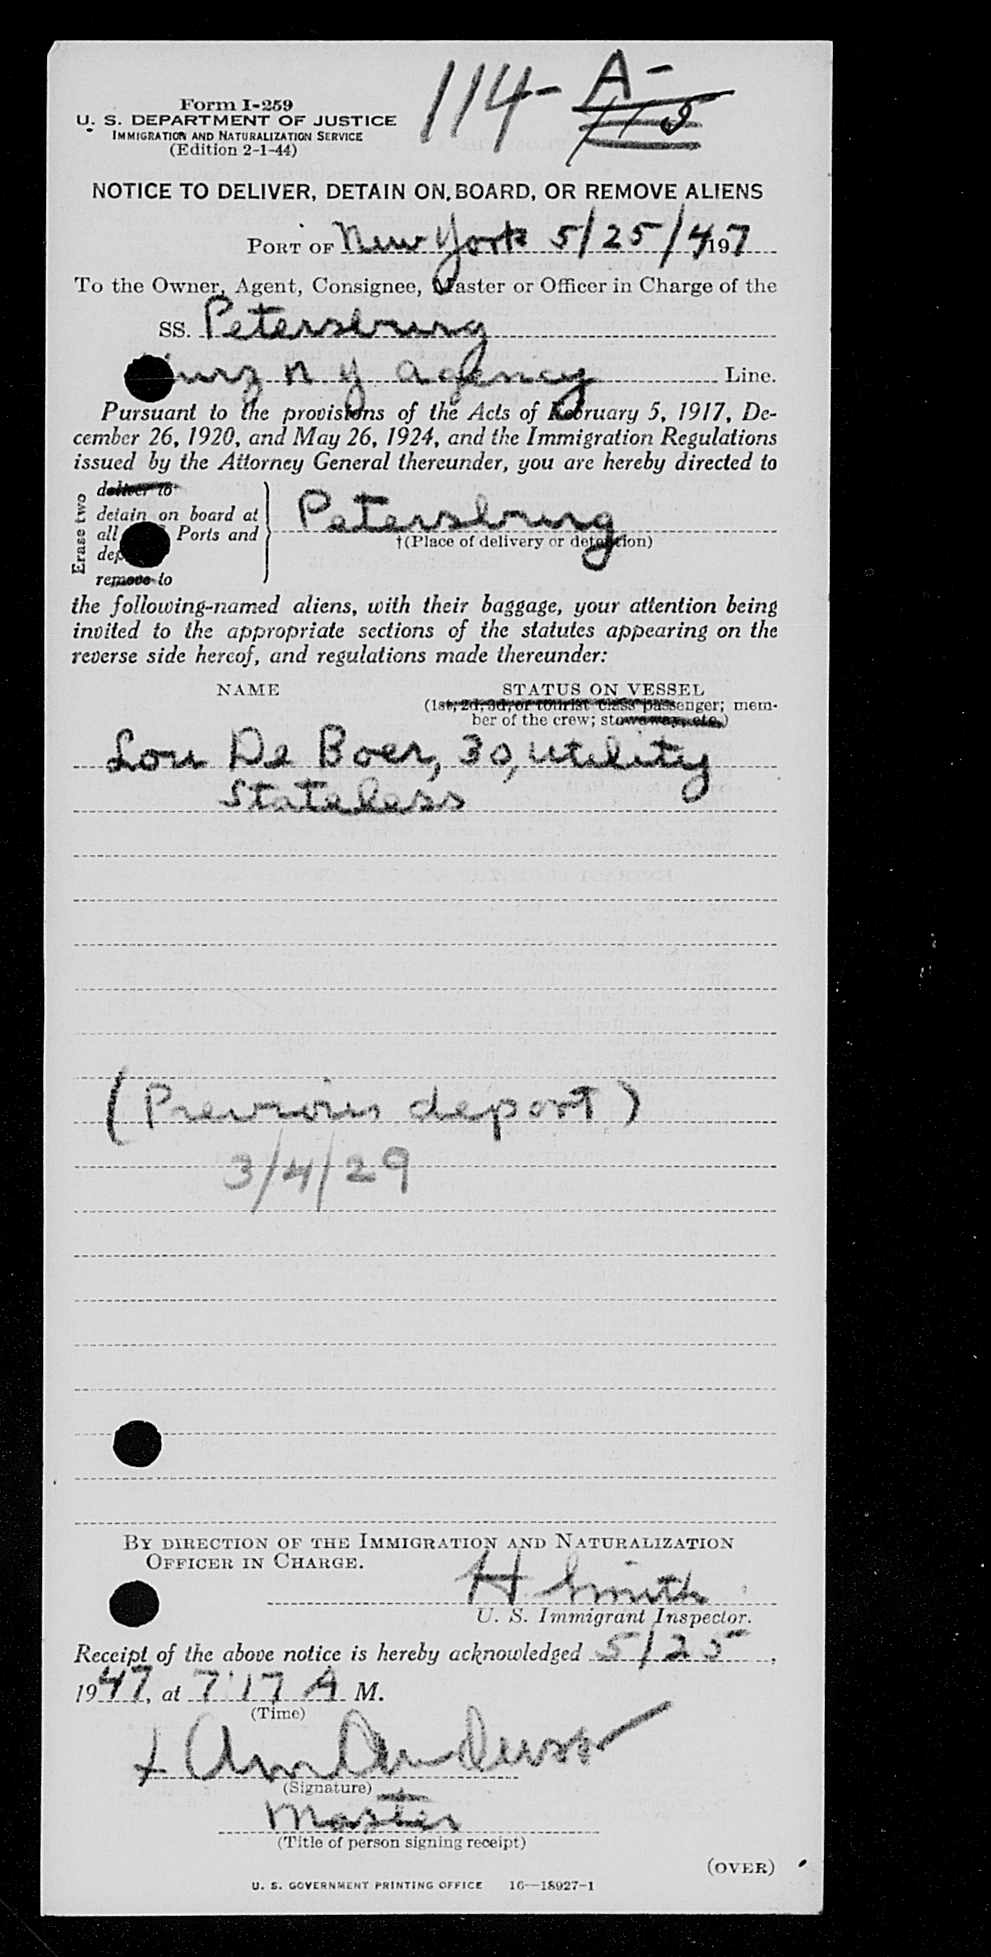 114-A-
Form I-259
U. S. DEPARTMENT OF JUSTICE
IMMIGRATION AND NATURALIZATION SERVICE
(Edition 2-1-44)
NOTICE TO DELIVER, DETAIN ON BOARD, OR REMOVE ALIENS
PORT OF New York 5/25/47 197
To the Owner, Agent, Consignee, Master or Officer in Charge of the
SS. Petersburg
n y agency Line.
Pursuant to the provisions of the Acts of February 5, 1917, De-
cember 26, 1920, and May 26, 1924, and the Immigration Regulations
issued by the Attorney General thereunder, you are hereby directed to
Erase two
deliver to
detain on board at
all Ports and
remove to
Petersburg
†(Place of delivery or detention)
the following-named aliens, with their baggage, your attention being
invited to the appropriate sections of the statutes appearing on the
reverse side hereof, and regulations made thereunder:
NAME STATUS ON VESSEL
(1st, 2d, 3d, or tourist class passenger; mem-
ber of the crew; stowaway, etc.)
Lou De Boer, 30, utility
Stateless
(Previous deport)
3/4/29
BY DIRECTION OF THE IMMIGRATION AND NATURALIZATION
OFFICER IN CHARGE.
H Smith
U. S. Immigrant Inspector.
Receipt of the above notice is hereby acknowledged 5/25,
1947, at 7:17 A M.
(Time)
(Signature)
Master
(Title of person signing receipt)
(OVER)
U. S. GOVERNMENT PRINTING OFFICE 16—18927-1